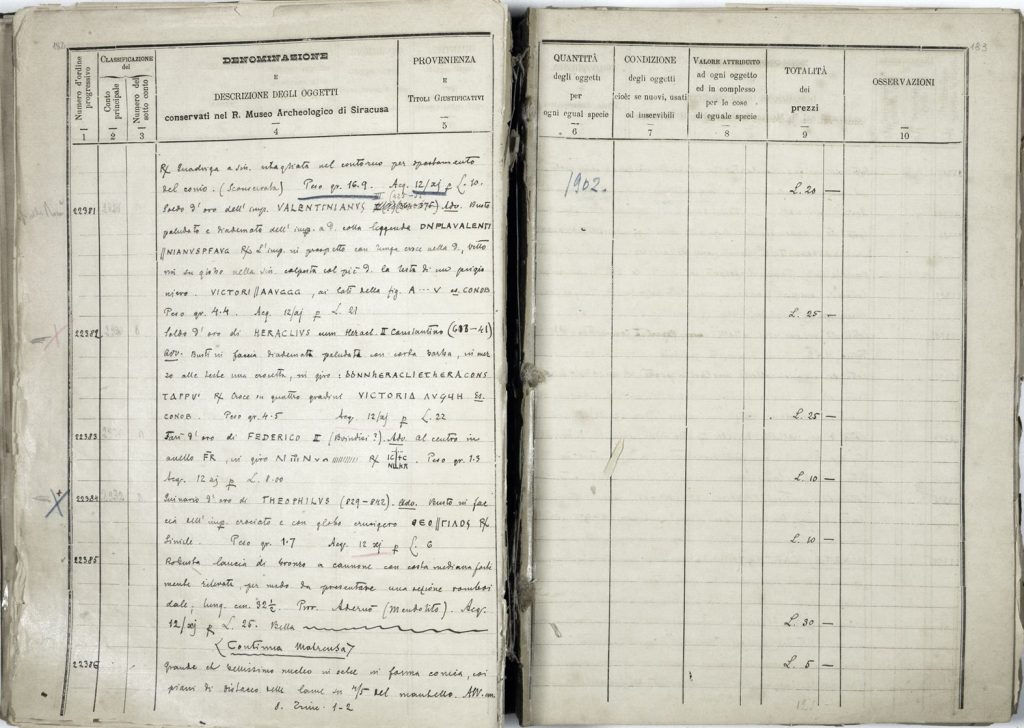 182
Numero d'ordine progressivo
CLASSIFICAZIONE del
Conto principale
Numero del sotto conto
DENOMINAZIONE
E
DESCRIZIONE DEGLI OGGETTI
conservati nel R. Museo Archeologico di Siracusa
PROVENIENZA
E
TITOLI GIUSTIFICATIVI
1 2 3 4 5
R/ Quadriga a sin. tagliata nel contorno per spostamento
del conio. (Sconservata) Peso gr. 16.9. Acq. 12/xj p L. 10.
22381 Soldo d'oro dell' imp. VALENTINIANVS Adv. Busto
paludato e diademato dell' imp. a D. colla leggenda DNPLAVALENTI
//NIANVSPFAVG R/ L'imp. in prospetto con lunga croce nella d., vitto
ria su globo nella sin. calpesta col piè d. la testa di un prigio
niero. VICTORI//AAVGGG, ai lati della fig. A ... V es. CONOB
Peso gr. 4.4. Acq. 12/xj p L. 21
22382 Soldo d'oro di HERACLIVS cum Heracl. II Constantino
Adv. Busti in faccia diademata paludata con corta barba, in mez
zo alle teste una crocetta, in giro: DDNNHERACLIETHERACONS
TAPPV' R/ Croce su quattro gradini VICTORIA AVGЧH Es.
CONOB. Peso gr. 4.5 Acq. 12/xj p L. 22
22383 Tarì d'oro di FEDERICO II (Brindisi?). Adv. al centro in
anello FR, in giro R/ IC XC NI KA. Peso gr. 1.3
Acq. 12 xj p L. 8.00
22384 Quinario d'oro di THEOPHILVS (829-842). Adv. Busto in fac
cia dell' imp. crociato e con globo crucigero R/
Simile. Peso gr. 1.7 Acq. 12 xj p L. 6
22385 Robusta lancia di bronzo a cannone con costa mediana forte
mente rilevata, per modo da presentare una sezione romboi
dale; lung. cm. 32½. Prov. Adernò (Mendolito). Acq.
12/xj p L. 25. Bella
(Continua Matrensa)
22386 Grande et bellissimo nucleo in selce in forma conica, coi
piani di distacco delle lame in 4/5 del mantello.
d. Trinc. 1-2
183
QUANTITÀ
degli oggetti
per
ogni egual specie
6
CONDIZIONE
degli oggetti
cioè: se nuovi, usati
od inservibili
7
VALORE ATTRIBUITO
ad ogni oggetto
ed in complesso
per le cose
di eguale specie
8
TOTALITÀ
dei
prezzi
9
OSSERVAZIONI
10
1902.
L. 20 —
L. 25 —
L. 25 —
L. 10 —
L. 10 —
L. 30 —
L. 5 —